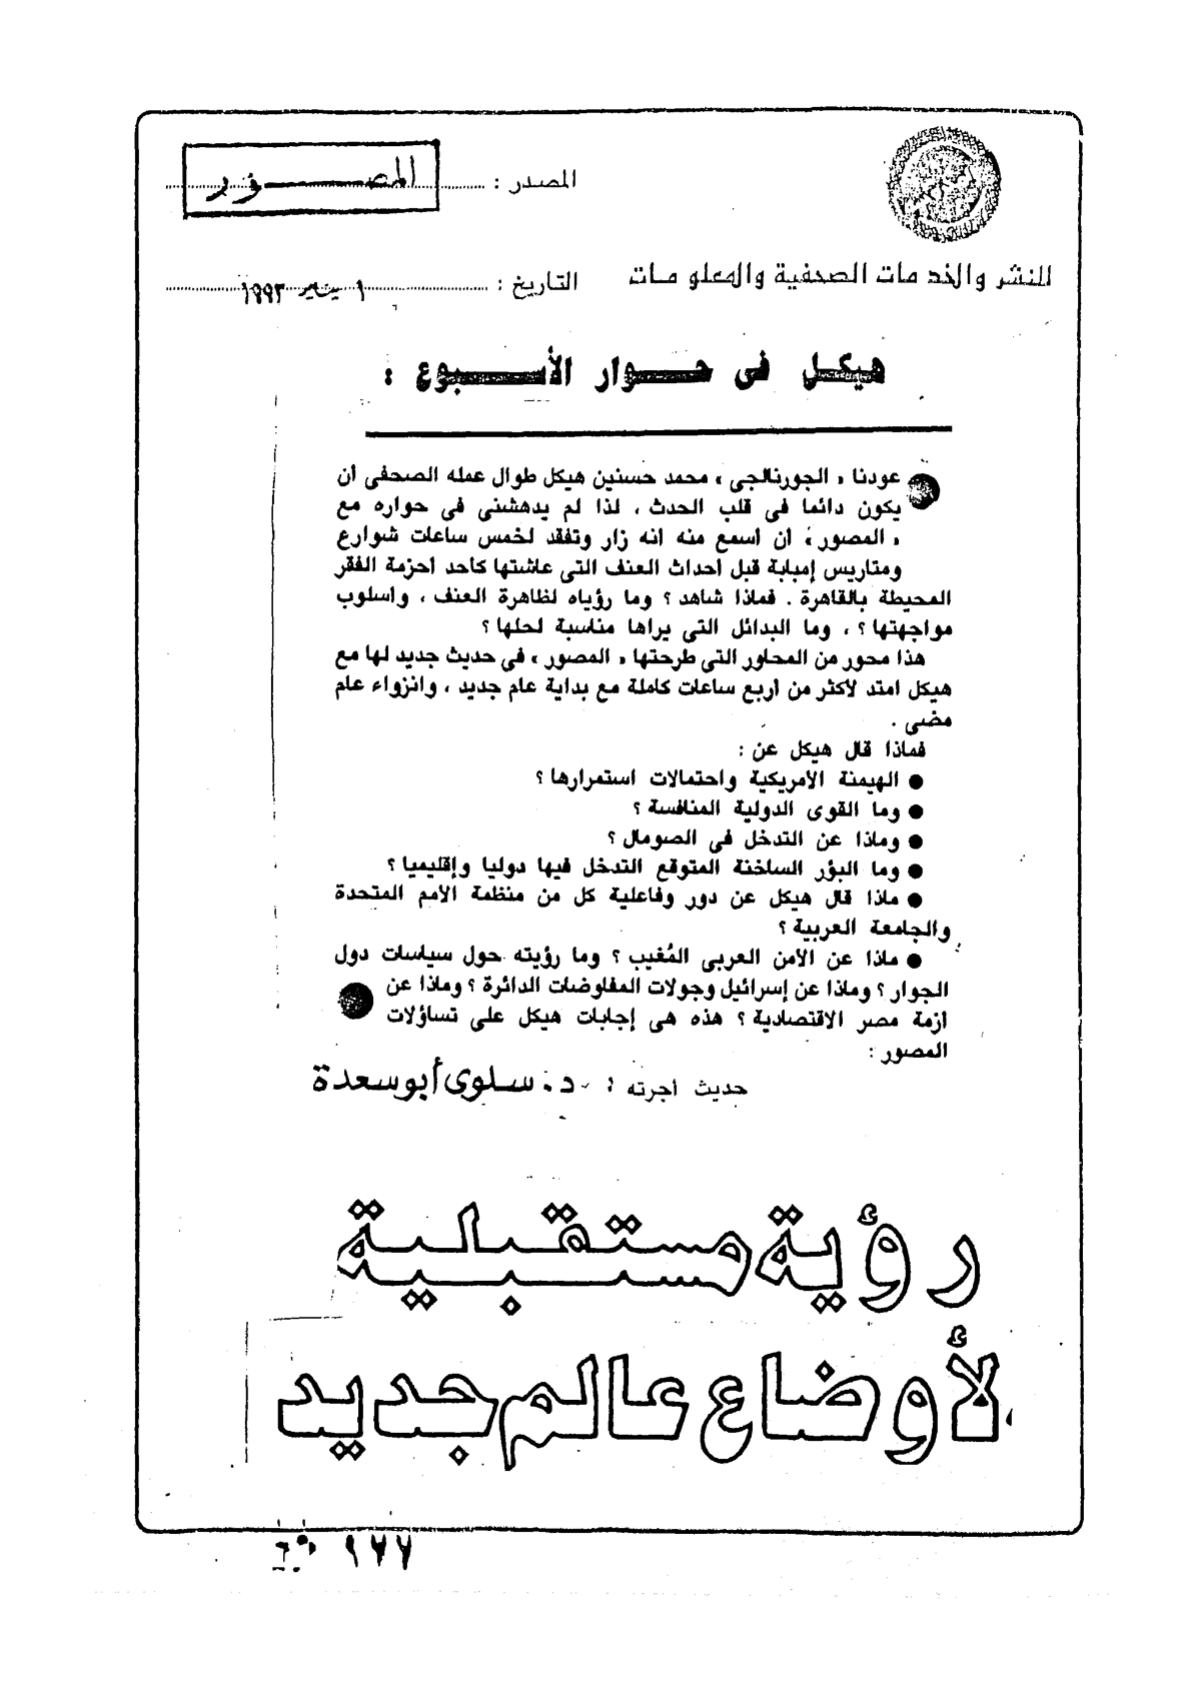 المصدر : المصـــور
للنشر والخدمات الصحفية والمعلومات
التاريخ : ١ يناير ١٩٩٣
هيكل فى حوار الأسبوع :
عودنا « الجورنالجى » محمد حسنين هيكل طوال عمله الصحفى ان
يكون دائما فى قلب الحدث ، لذا لم يدهشنى فى حواره مع
« المصور » ان اسمع منه انه زار وتفقد لخمس ساعات شوارع
ومتاريس إمبابة قبل احداث العنف التى عاشتها كأحد احزمة الفقر
المحيطة بالقاهرة . فماذا شاهد ؟ وما رؤياه لظاهرة العنف ، واسلوب
مواجهتها ؟ ، وما البدائل التى يراها مناسبة لحلها ؟
هذا محور من المحاور التى طرحتها « المصور » فى حديث جديد لها مع
هيكل امتد لاكثر من اربع ساعات كاملة مع بداية عام جديد ، وانزواء عام
مضى .
فماذا قال هيكل عن :
● الهيمنة الامريكية واحتمالات استمرارها ؟
● وما القوى الدولية المنافسة ؟
● وماذا عن التدخل فى الصومال ؟
● وما البؤر الساخنة المتوقع التدخل فيها دوليا وإقليميا ؟
● ماذا قال هيكل عن دور وفاعلية كل من منظمة الامم المتحدة
والجامعة العربية ؟
● ماذا عن الامن العربى المُغيب ؟ وما رؤيته حول سياسات دول
الجوار ؟ وماذا عن إسرائيل وجولات المفاوضات الدائرة ؟ وماذا عن
ازمة مصر الاقتصادية ؟ هذه هى إجابات هيكل على تساؤلات
المصور :
حديث اجرته : د. سلوى أبو سعدة
رؤية مستقبلية
لأوضاع عالم جديد
٩٧٧